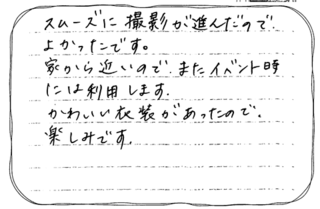 スムーズに撮影が進んだので.
よかったです。
家から近いので またイベント時
には利用します.
かわいい衣装があったので.
楽しみです.